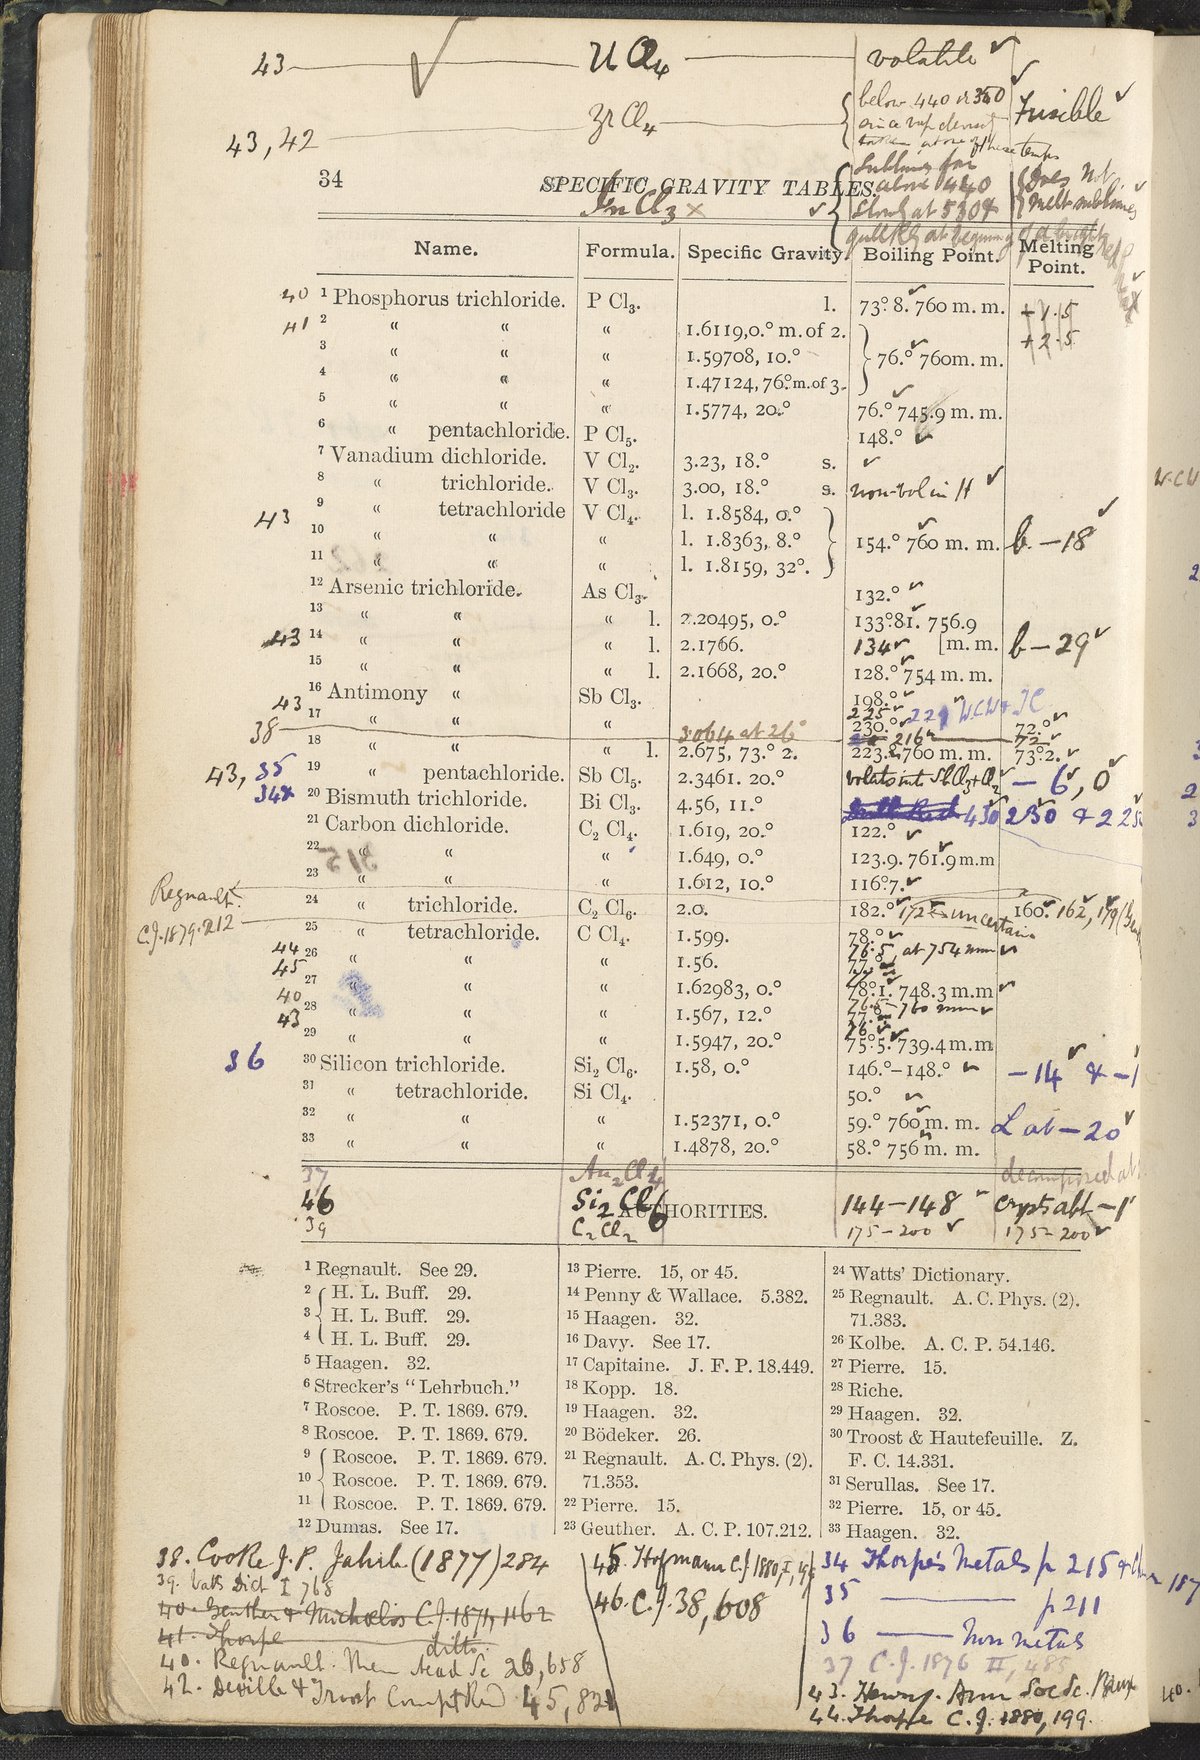 43 U Cl4 volatile ✓
below 440 or 360 Fusible ✓
43, 42 Zr Cl4
34 SPECIFIC GRAVITY TABLES.
In Cl3 ×
Sublimes far above 440
slowly at 530
Does not melt sublimes
Name. Formula. Specific Gravity Boiling Point. Melting Point.
40 1 Phosphorus trichloride. P Cl3. l. 73.°8. 760 m. m. + 1.5
41 2 “ “ “ 1.6119, 0.° m. of 2. + 2.5
3 “ “ “ 1.59708, 10.° } 76.° 760m. m.
4 “ “ “ 1.47124, 76.° m. of 3.
5 “ “ “ 1.5774, 20.° 76.° 745.9 m. m.
6 “ pentachloride. P Cl5. 148.° ✓
7 Vanadium dichloride. V Cl2. 3.23, 18.° s. ✓
8 “ trichloride. V Cl3. 3.00, 18.° s. non-vol in H ✓
43 9 “ tetrachloride V Cl4. l. 1.8584, 0.°
10 “ “ “ l. 1.8363, 8.° } 154.° 760 m. m. b. –18 ✓
11 “ “ “ l. 1.8159, 32°.
12 Arsenic trichloride. As Cl3. 132.° ✓
13 “ “ “ l. 2.20495, 0.° 133°.81. 756.9
43 14 “ “ “ l. 2.1766. 134 ✓ [m. m. b – 29 ✓
15 “ “ “ l. 2.1668, 20.° 128.° 754 m. m.
16 Antimony “ Sb Cl3. 198.° ✓
43 225 ✓ 221 W.C.W + TC
17 “ “ “ 230.° ✓ 72.° ✓
38 3.064 at 26° 216 72 ✓
18 “ “ “ l. 2.675, 73.° 2. 223.° 760 m. m. 73°2. ✓
43, 35 19 “ pentachloride. Sb Cl5. 2.3461. 20.° volats into SbCl3 + Cl2 – 6, 0 ✓
34 20 Bismuth trichloride. Bi Cl3. 4.56, 11.° 430 230 & 225
21 Carbon dichloride. C2 Cl4. 1.619, 20.° 122.° ✓
22 “ “ “ 1.649, 0.° 123.9. 761.9 m.m
23 “ “ “ 1.612, 10.° 116°7. ✓
Regnault. 24 “ trichloride. C2 Cl6. 2.0. 182.° 172 uncertain 160. 162, 179
C.J. 1879. 212 25 “ tetrachloride. C Cl4. 1.599. 78.° ✓
44 26 “ “ “ 1.56. 76.5, at 754 mm ✓
45 77.°
27 “ “ “ 1.62983, 0.° 78°.1. 748.3 m.m ✓
40 28 “ “ “ 1.567, 12.° 76.5 – 760 mm ✓
43 77.°
29 “ “ “ 1.5947, 20.° 75°.5. 739.4 m. m
36 30 Silicon trichloride. Si2 Cl6. 1.58, 0.° 146.°–148.° ✓ –14 & –1
31 “ tetrachloride. Si Cl4. 50.° ✓
32 “ “ “ 1.52371, 0.° 59.° 760 m. m. L at – 20 ✓
33 “ “ “ 1.4878, 20.° 58.° 756 m. m.
37 Au2 Cl4 decomposed at
46 Si2 Cl6 144–148 ✓ cryst abt –1
39 C2 Cl2 175–200 ✓ 175–200 ✓
AUTHORITIES.
1 Regnault. See 29.
2 H. L. Buff. 29.
3 H. L. Buff. 29.
4 H. L. Buff. 29.
5 Haagen. 32.
6 Strecker's “Lehrbuch.”
7 Roscoe. P. T. 1869. 679.
8 Roscoe. P. T. 1869. 679.
9 Roscoe. P. T. 1869. 679.
10 Roscoe. P. T. 1869. 679.
11 Roscoe. P. T. 1869. 679.
12 Dumas. See 17.
13 Pierre. 15, or 45.
14 Penny & Wallace. 5.382.
15 Haagen. 32.
16 Davy. See 17.
17 Capitaine. J. F. P. 18.449.
18 Kopp. 18.
19 Haagen. 32.
20 Bödeker. 26.
21 Regnault. A. C. Phys. (2).
71.353.
22 Pierre. 15.
23 Geuther. A. C. P. 107.212.
24 Watts' Dictionary.
25 Regnault. A. C. Phys. (2).
71.383.
26 Kolbe. A. C. P. 54.146.
27 Pierre. 15.
28 Riche.
29 Haagen. 32.
30 Troost & Hautefeuille. Z.
F. C. 14.331.
31 Serullas. See 17.
32 Pierre. 15, or 45.
33 Haagen. 32.
38. Cooke J. P. Jahrb (1877) 284
39. Watts Dict I 768
40. Geuther & Michaelis C.J. 1871, 1162
41. Thorpe ditto
40. Regnault. Mem Acad Sc 26, 658
42. Deville & Troost Compt Rend 45, 821
45. Hofmann C.J. 1880, I,
46. C.J. 38, 608
34 Thorpe's Metals p 215 &
35 —— p 211
36 —— Non metals
37 C.J. 1876 II, 485
43. Ann Soc Sc. Brux
44. Thorpe C.J. 1880, 199.